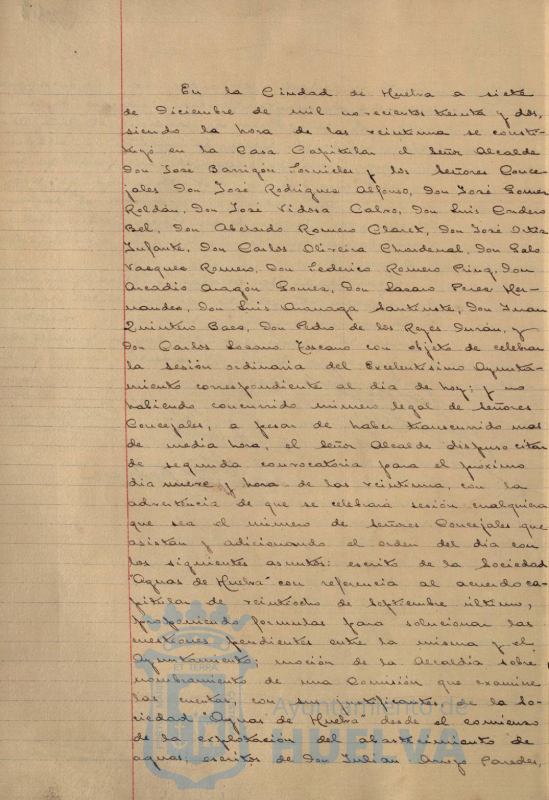 En la Ciudad de Huelva a siete
de Diciembre de mil novecientos treinta y dos,
siendo la hora de las veintiuna se consti-
tuyó en la Casa Capitular el Señor Alcalde
Don José Barrigón Fornieles y los Señores Conce-
jales Don José Rodríguez Alfonso, Don José Gomez
Roldán, Don José Vidosa Calvo, Don Luis Cordero
Bel, Don Abelardo Romero Claret, Don José Ortiz
Infante, Don Carlos Oliveira Chardenal, Don Galo
Vazquez Romero, Don Federico Romero Don
Arcadio Aragón Gomez, Don Lazaro Perez Her-
nandez, Don Luis Don Juan
Quintero Baez, Don Pedro de los Reyes Durán, y
Don Carlos Lozano Toscano con objeto de celebrar
la sesión ordinaria del Excelentísimo Ayunta-
miento correspondiente al dia de hoy; y no
habiendo concurrido número legal de Señores
Concejales, a pesar de haber transcurrido mas
de media hora, el Señor Alcalde dispuso citar
de segunda convocatoria para el próximo
dia nueve y hora de las veintiuna, con la
advertencia de que se celebrará sesión cualquiera
que sea el número de Señores Concejales que
asistan y adicionando el orden del dia con
los siguientes asuntos: escrito de la Sociedad
"Aguas de Huelva" con referencia al acuerdo ca-
pitular de veintiocho de Septiembre último,
proponiendo formulas para solucionar las
cuestiones pendientes entre la misma y el
Ayuntamiento; moción de la Alcaldia sobre
nombramiento de una Comisión que examine
las cuentas, con sus justificantes de la So-
ciedad "Aguas de Huelva" desde el comienzo
de la explotación del abastecimiento de
aguas; escritos de Don Julian Paredes,
Ayuntamiento de
HUELVA